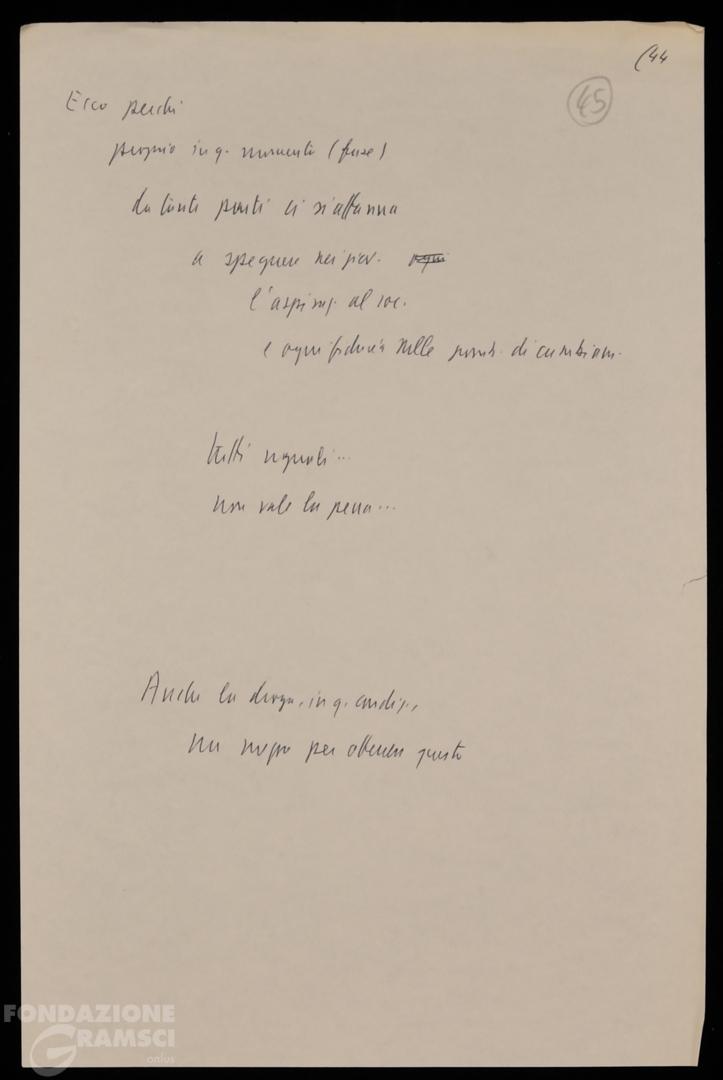 (44
45
Ecco perché
proprio in q. momento (fase)
da tante parti ci si affanna
a spegnere nei giov. ogni
l'aspiraz. al soc.
e ogni fiducia nelle possib. di cambiam.
tutti uguali...
non vale la pena...
Anche la droga, in q. condiz.,
un per ottenere questo
FONDAZIONE
GRAMSCI
onlus